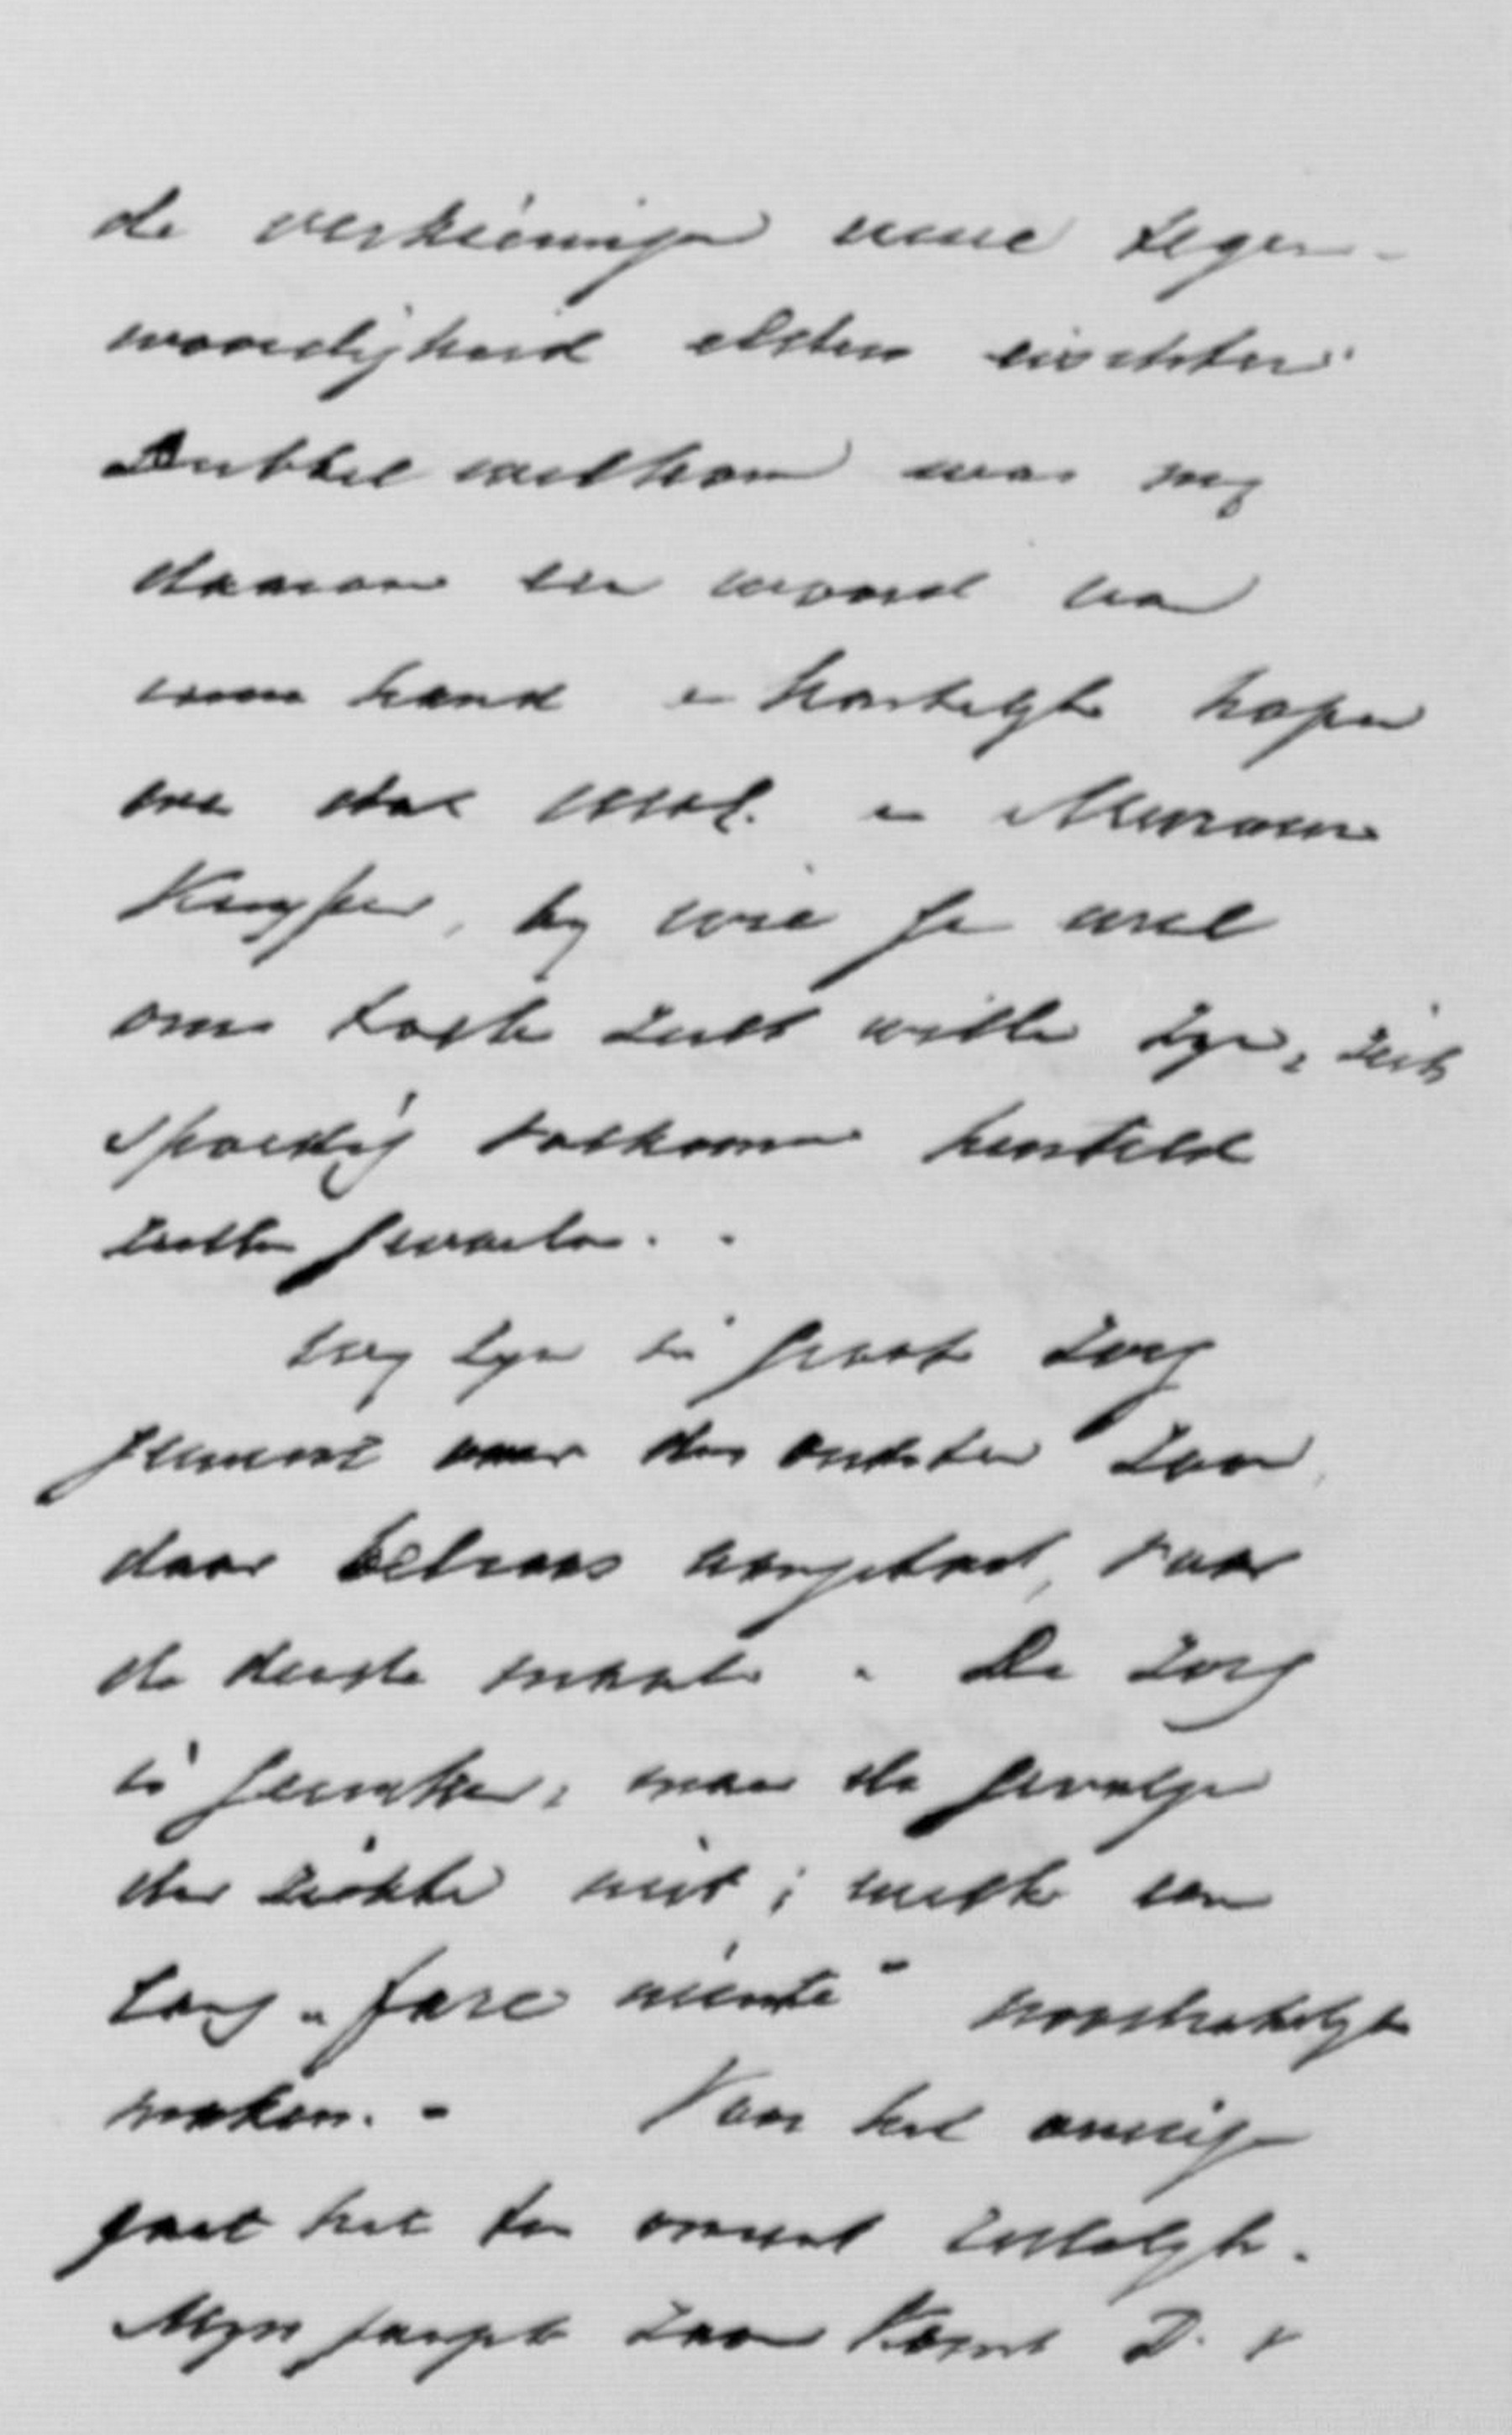 de verkiezingen uwe tegen-
woordigheid elders eischten.
Dubbel welkom was mij
daarom een woord van
uwe hand en hartelijk hopen
we dat UEd. en Mevrouw
Kuyper, bij wie je wel
onze tolk zult willen zijn, zich
spoedig volkomen hersteld
zullen gevoelen.
Wij zijn in groote zorg
geweest over den oudsten zoon,
door tetanus aangetast, voor
de derde maal. De zorg
is geweken, maar de gevolgen
der ziekte niet; welke een
lang "fare niente" noodzakelijk
maken. - Voor het overige
gaat het ten onzent redelijk.
Mijn jongste zoon komt D. V